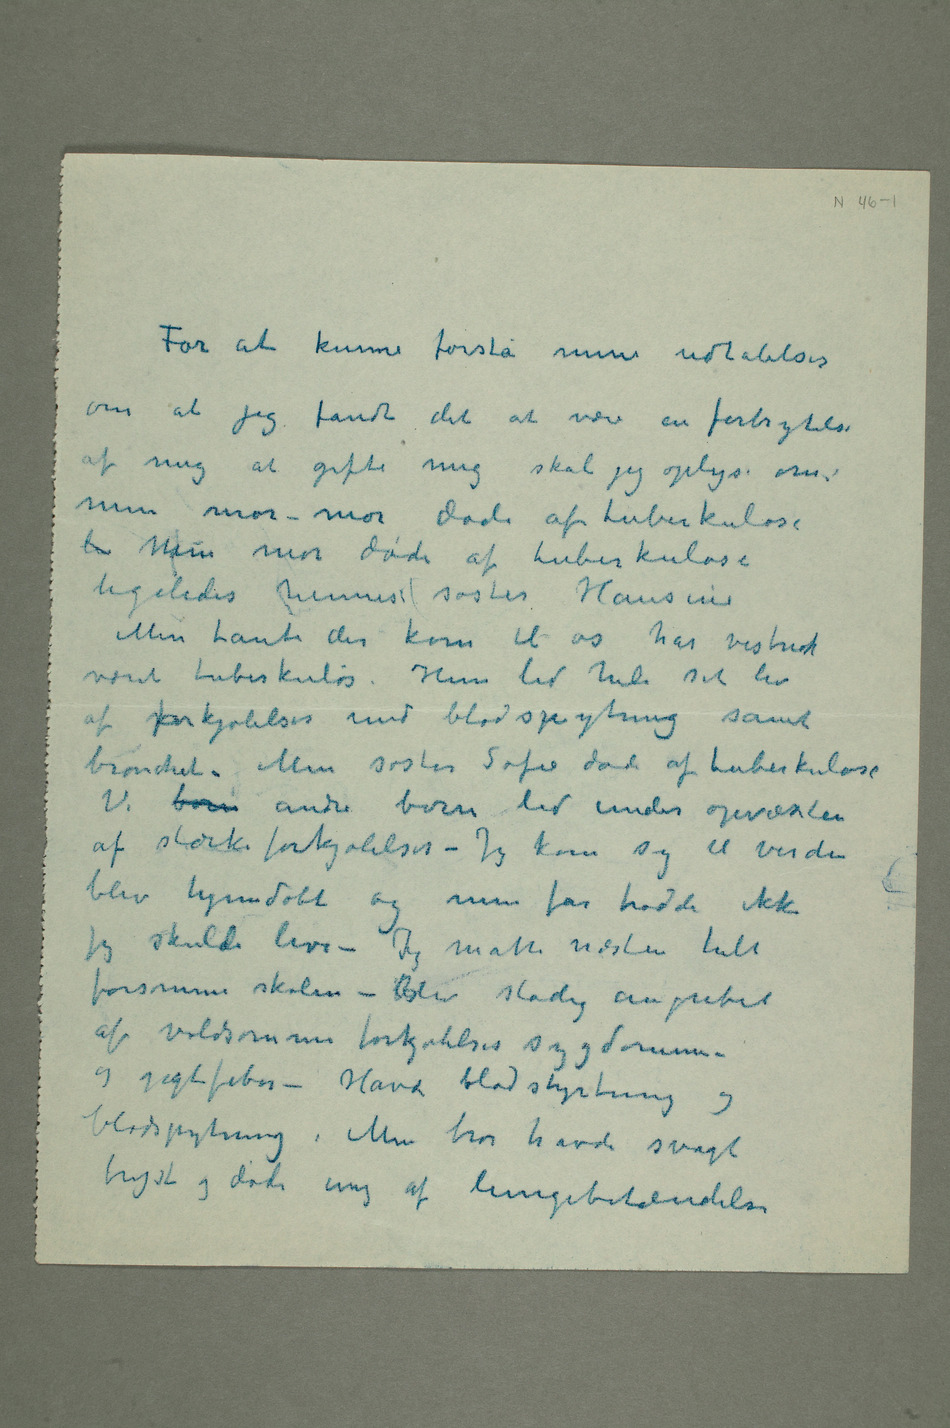 N 46-1
For at kunne forstå mine udtalelser
om at jeg fandt det at være en forbrytelse
af mig at gifte mig skal jeg oplyse om:
min mor-mor døde af tuberkulose
Min mor døde af tuberkulose
ligeledes hennes søster Hansine
Min tante der kom til os har vistnok
været tuberkuløs. Hun led hele sit liv
af forkjølelser med blodspytning samt
bronchit. Min søster Sofie døde af tuberkulose
Vi børn andre børn led under opvæxten
af stærke forkjølelser – Jeg kom syg til verden
blev hjemdøbt og min far trodde ikke
jeg skulde leve – Jeg måtte næsten helt
forsømme skolen – Blev stadig angrebet
af voldsomme forkjølelses sygdomme –
og gigtfeber – Havde blodstyrtning og
blodspytning. Min bror havde svagt
bryst og døde ung af lungebetændelse